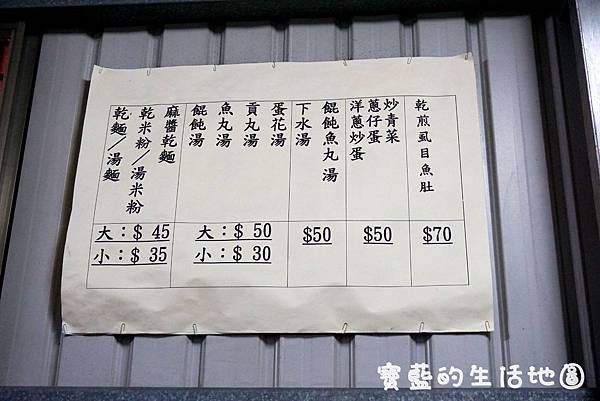 乾煎虱目魚肚
$70
炒青菜
蔥仔蛋
洋蔥炒蛋
$50
餛飩魚丸湯
下水湯
$50
蛋花湯
貢丸湯
魚丸湯
餛飩湯
大：$ 50
小：$ 30
麻醬乾麵
乾米粉／湯米粉
乾麵／湯麵
大：$ 45
小：$ 35
寶藍的生活地圖